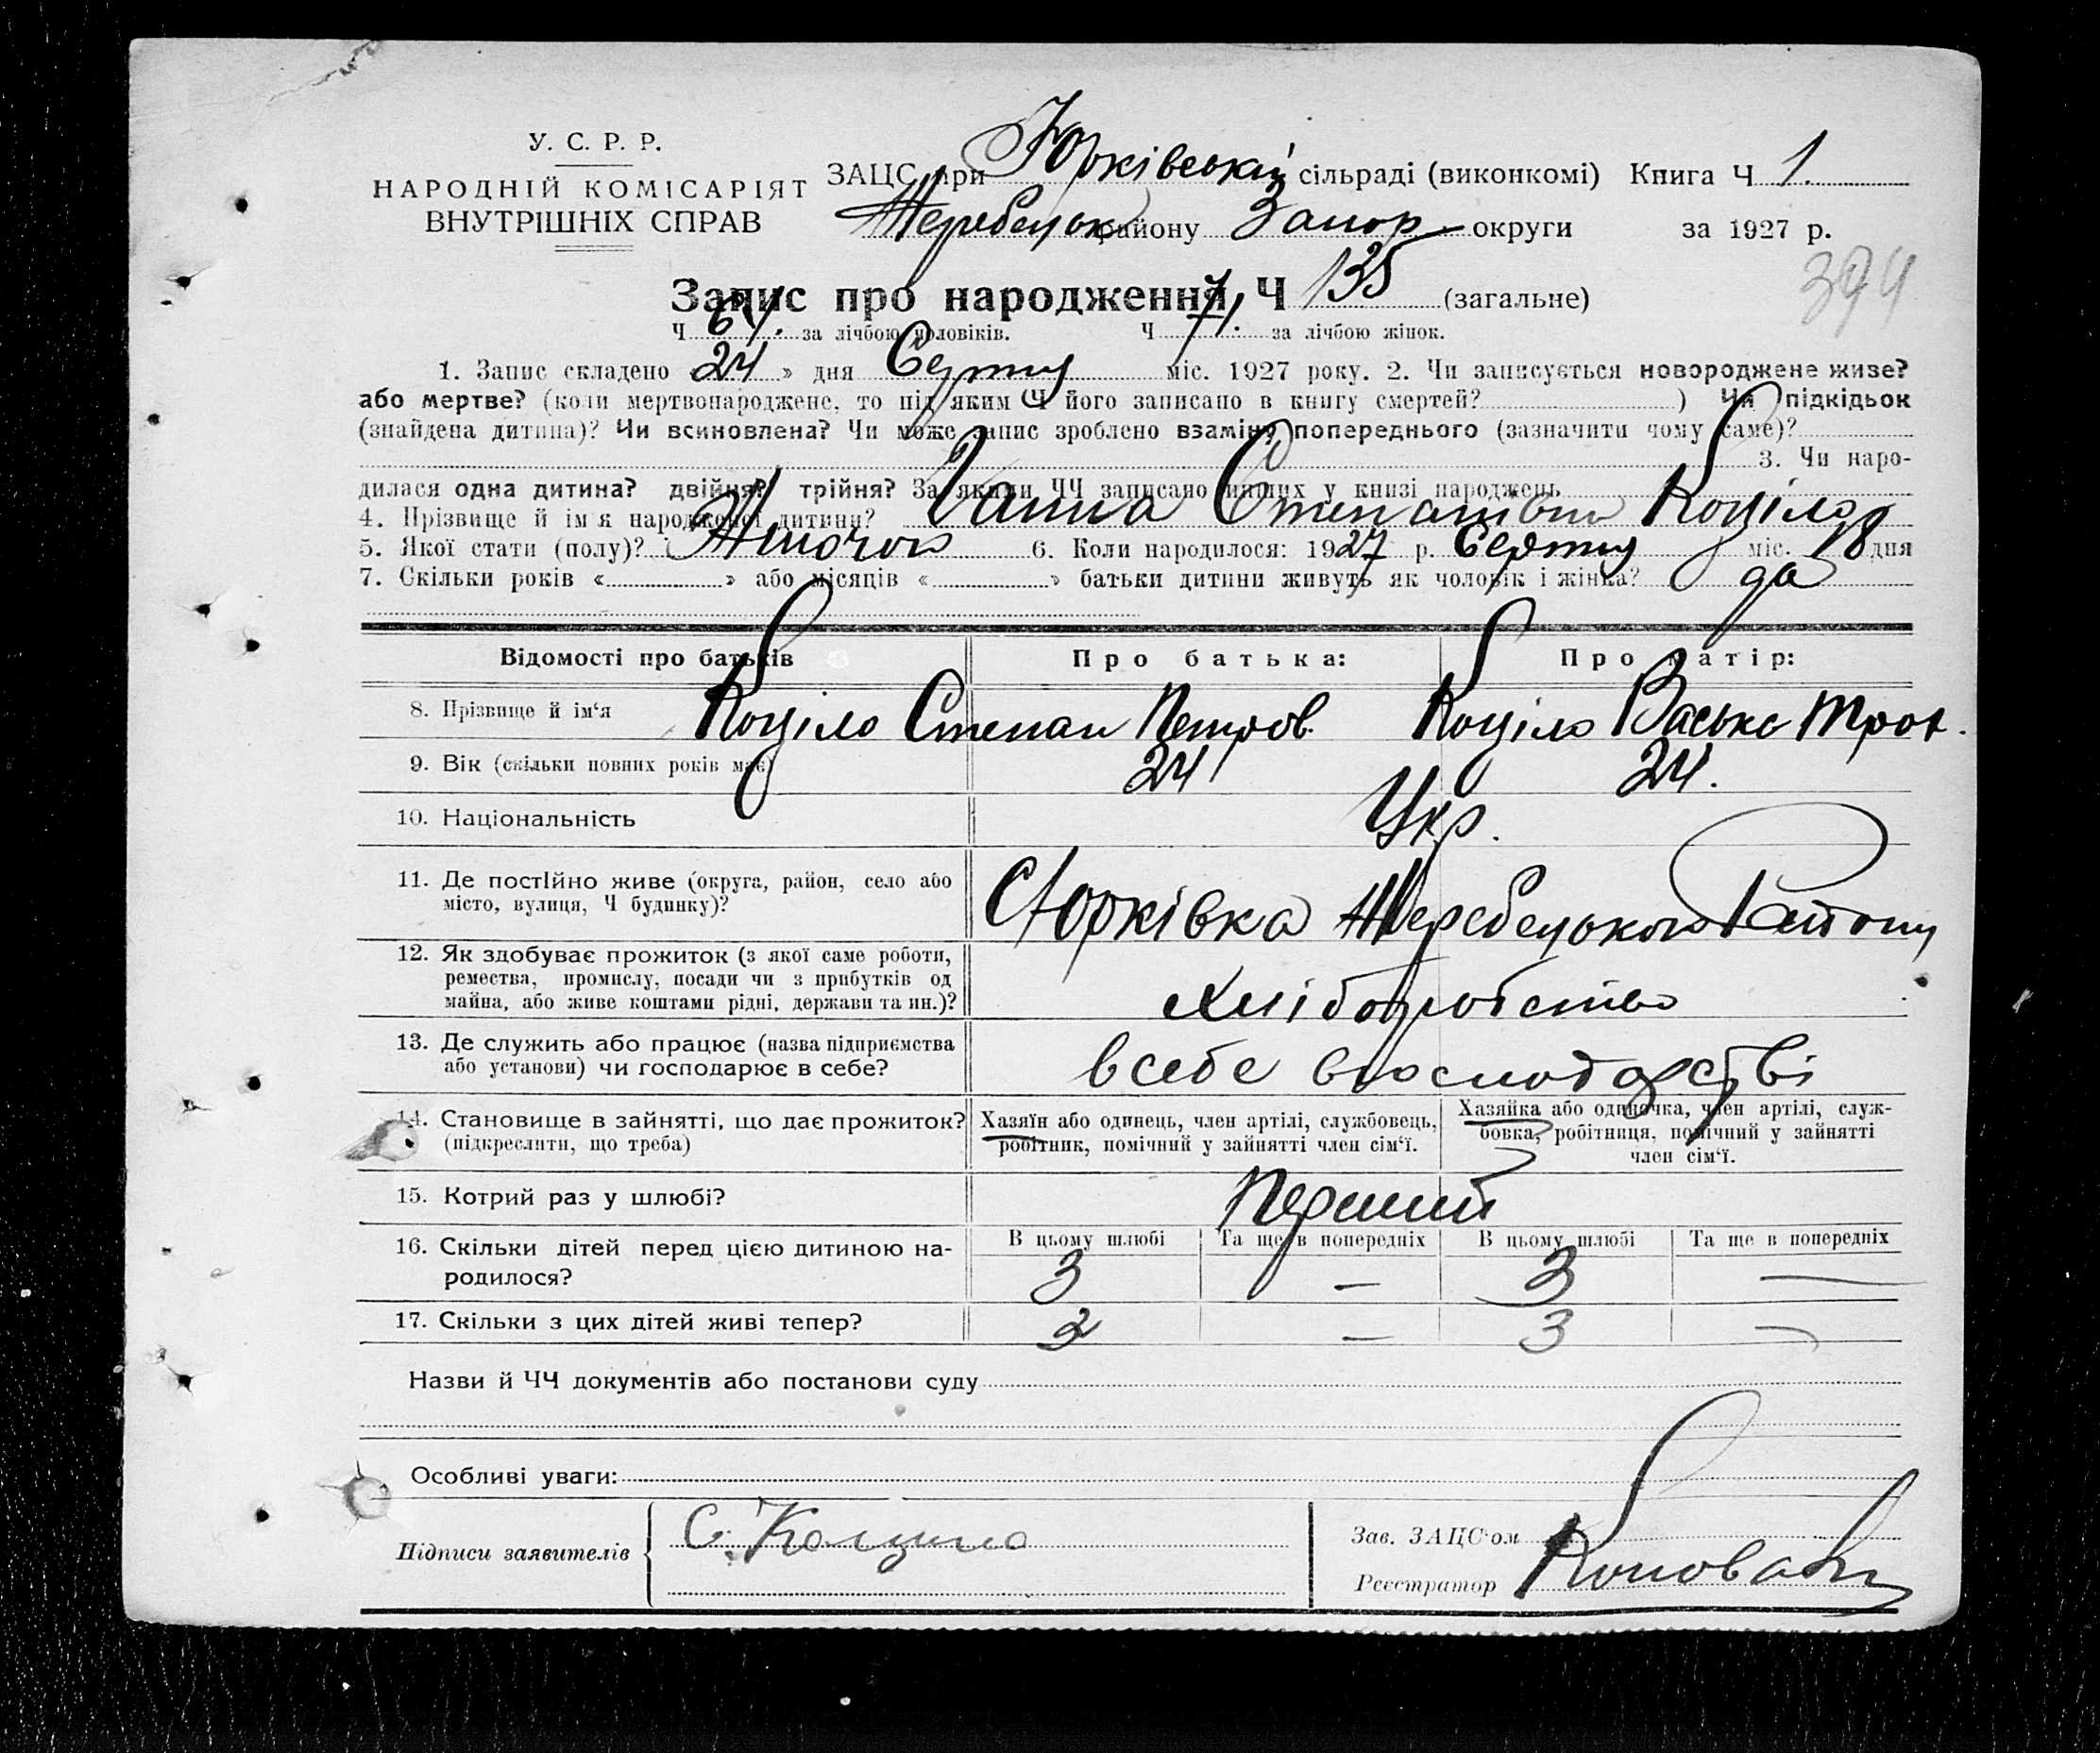 У. С. Р. Р.
НАРОДНІЙ КОМІСАРІЯТ
ВНУТРІШНІХ СПРАВ
ЗАЦС при Юрківські сільраді (виконкомі) Книга Ч 1.
Жеребецьк району Запор округи за 1927 р.
394
Запис про народження Ч 135 (загальне)
Ч 64. за лічбою чоловіків. Ч 71. за лічбою жінок.
1. Запис складено «24» дня Серпня міс. 1927 року. 2. Чи записується новороджене живе?
або мертве? (коли мертвонароджене, то під яким Ч його записано в книгу смертей? ) Чи підкідьок
(знайдена дитина)? Чи всиновлена? Чи може запис зроблено взамін попереднього (зазначити чому саме)?
3. Чи наро-
дилася одна дитина? двійня? трійня? За якими ЧЧ записано инших у книзі народжень
4. Прізвище й ім'я народженої дитини? Ганна Степанівна Коціло
5. Якої стати (полу)? Жіночої 6. Коли народилося: 1927 р. Серпня міс. 18 дня
7. Скільки років « » або місяців « » батьки дитини живуть як чоловік і жінка? да
Відомості про батьків Про батька: Про матір:
8. Прізвище й ім'я Коціло Степан Петров. Коціло Васька
9. Вік (скільки повних років має) 24 24.
10. Національність Укр.
11. Де постійно живе (округа, район, село або
місто, вулиця, Ч будинку)? Юрківка Жеребецького Району
12. Як здобуває прожиток (з якої саме роботи,
ремества, промислу, посади чи з прибутків од
майна, або живе коштами рідні, держави та ин.)? Хліборобство
13. Де служить або працює (назва підприємства
або установи) чи господарює в себе? в себе в господарстві
14. Становище в зайнятті, що дає прожиток?
(підкреслити, що треба)
Хазяїн або одинець, член артілі, службовець,
робітник, помічний у зайнятті член сім'ї.
Хазяйка або одиночка, член артілі, служ-
бовка, робітниця, помічний у зайнятті
член сім'ї.
15. Котрий раз у шлюбі? Перший
В цьому шлюбі Та ще в попередніх В цьому шлюбі Та ще в попередніх
16. Скільки дітей перед цією дитиною на-
родилося? 3 — 3 —
17. Скільки з цих дітей живі тепер? 2 — 3 —
Назви й ЧЧ документів або постанови суду
Особливі уваги:
Підписи заявителів С. Коцило
Зав. ЗАЦС'ом
Реєстратор Коновал